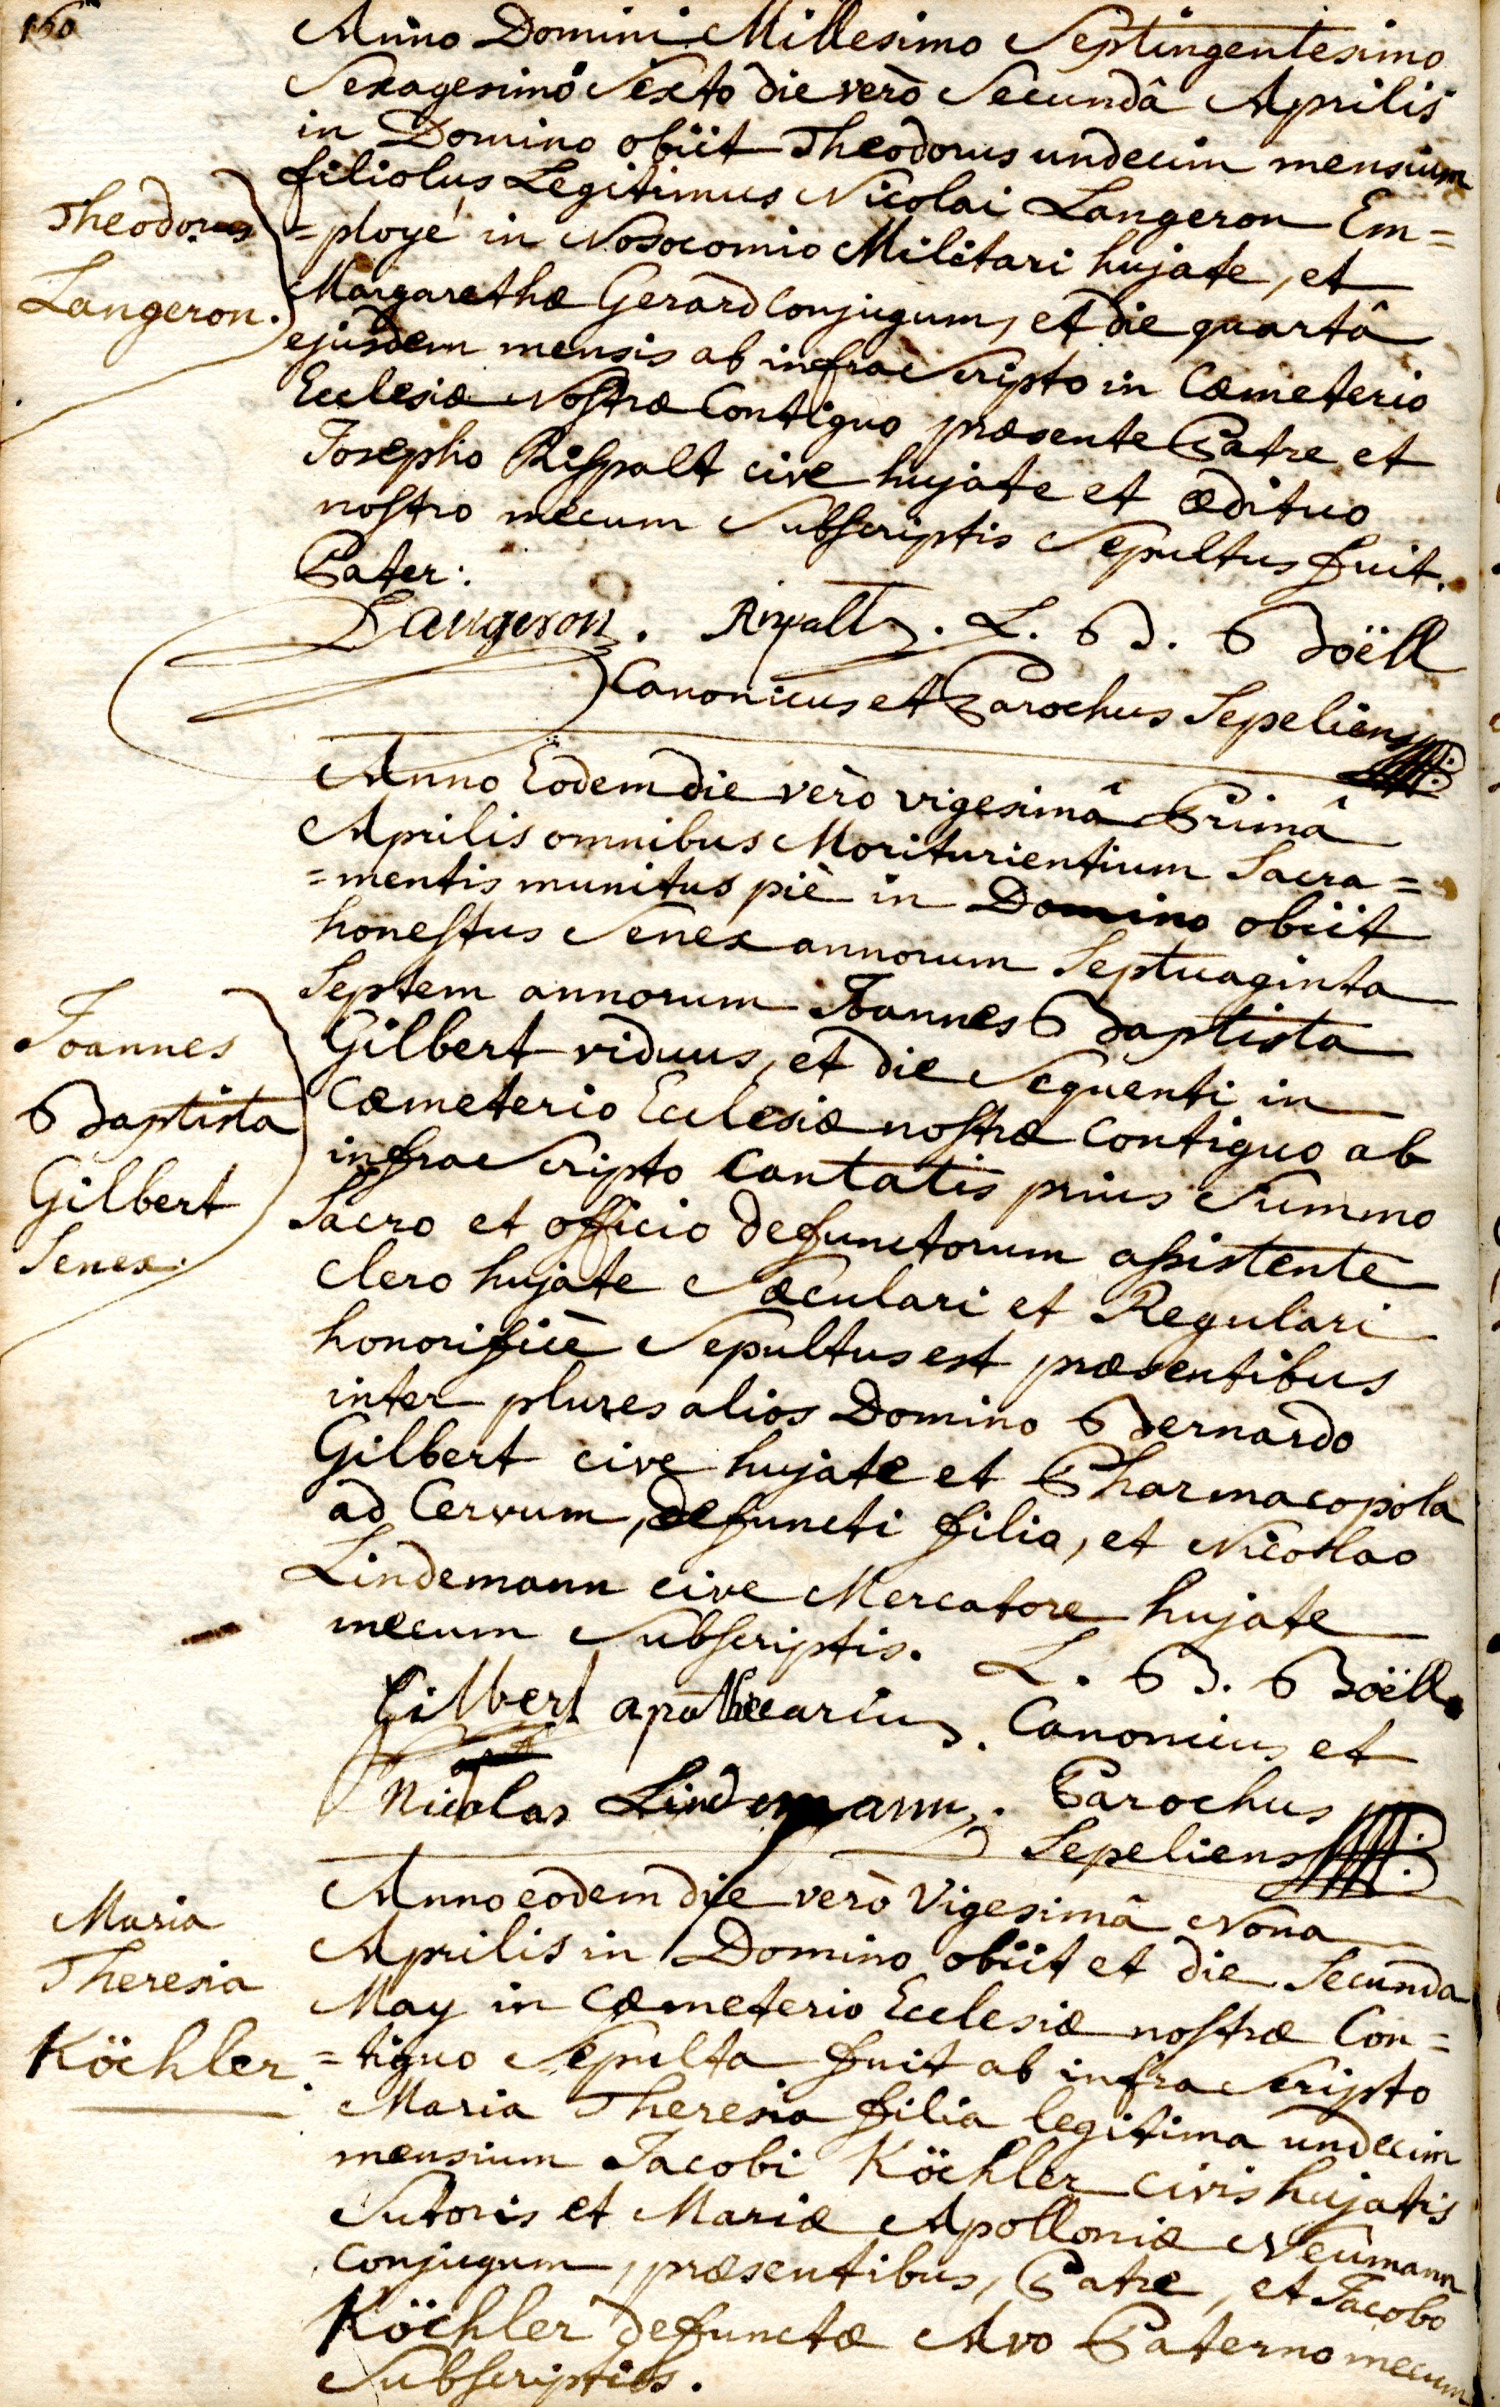 160
Anno Domini Millesimo Septingentesimo
Sexagesimo Sexto die verò Secundâ Aprilis
in Domino obiit Theodorus undecim mensium
filiolus Legitimus Nicolai Langeron Em=
=ployé in Nosocomio Militari hujate, et
Margarethæ Gerard Conjugum, et die quartâ
ejusdem mensis ab infra Scripto in Cæmeterio
Ecclesiæ Nostræ Contiguo præsente Patre et
Josepho Rispalt cive hujate et ædituo
nostro mecum Subscriptis Sepultus fuit.
Theodorus
Langeron.
Pater:
Langeron. Rispalt. L. B. Boëll
Canonicus et Parochus Sepeliens
Anno Eodem die verò vigesimâ Primâ
Aprilis omnibus Moriturientium Sacra=
=mentis munitus piè in Domino obiit
honestus Senex annorum Septuaginta
Septem annorum Joannes Baptista
Gilbert viduus, et die Sequenti in
Cæmeterio Ecclesiæ nostræ Contiguo ab
infra Scripto Cantatis prius Summo
Sacro et officio defunctorum assistente
Clero hujate Sæculari et Regulari
honorificè Sepultus est præsentibus
inter plures alios Domino Bernardo
Gilbert cive hujate et Pharmacopola
ad Cervum, defuncti filio, et Nicolao
Lindemann cive Mercatore hujate
mecum Subscriptis.
Joannes
Baptista
Gilbert
Senex.
L. B. Boëll
Gilbert apothecarius. Canonicus et
Nicolas Lindemann. Parochus
Sepeliens
Anno eodem die verò Vigesimâ Nona
Aprilis in Domino obiit et die Secunda
May in Cæmeterio Ecclesiæ nostræ Con=
=tiguo Sepulta fuit ab infra Scripto
Maria Theresia filia legitima undecim
mensium Jacobi Köchler civis hujatis
Sutoris et Mariæ Apolloniæ Neumann
Conjugum, præsentibus, Patre, et Jacobo
Köchler defunctæ Avo Paterno mecum
Subscriptis.
Maria
Theresia
Köchler